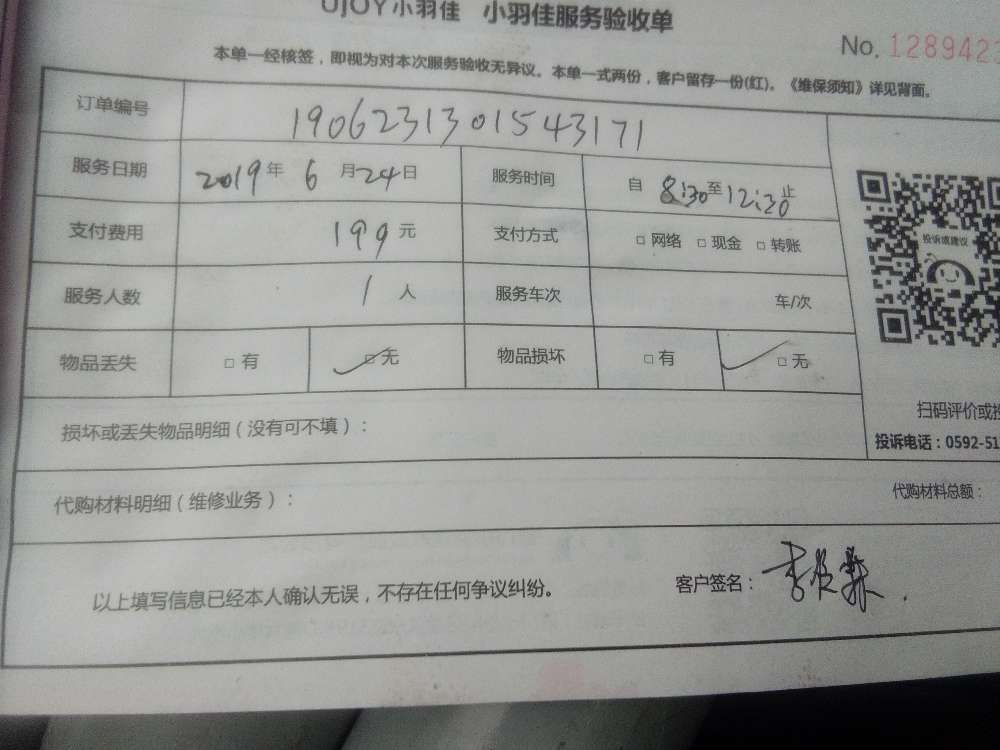 UJOY小羽佳 小羽佳服务验收单
No. 1289423
本单一经核签，即视为对本次服务验收无异议。本单一式两份，客户留存一份(红)。《维保须知》详见背面。
订单编号 190623130154317​1
服务日期 2019年 6 月24日 服务时间 自 8:30至12:30止
支付费用 199元 支付方式 □ 网络 □ 现金 □ 转账
服务人数 1 人 服务车次 车/次
物品丢失 □ 有 □ 无 物品损坏 □ 有 □ 无
投诉或建议
扫码评价或投
投诉电话：0592-51
损坏或丢失物品明细（没有可不填）：
代购材料明细（维修业务）： 代购材料总额：
以上填写信息已经本人确认无误，不存在任何争议纠纷。 客户签名：